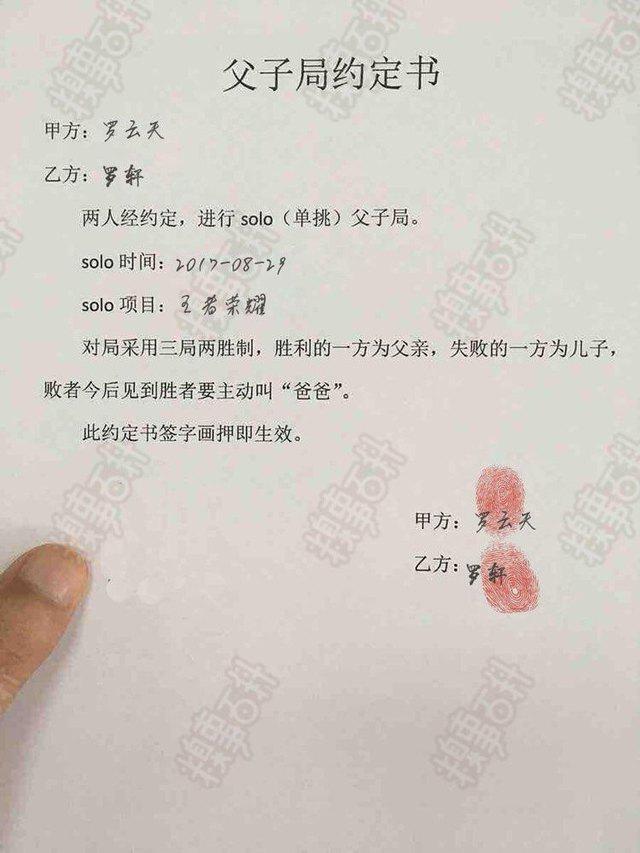 父子局约定书
甲方：罗云天
乙方：罗轩
两人经约定，进行 solo（单挑）父子局。
solo 时间：2017-08-29
solo 项目：王者荣耀
对局采用三局两胜制，胜利的一方为父亲，失败的一方为儿子，
败者今后见到胜者要主动叫“爸爸”。
此约定书签字画押即生效。
甲方：罗云天
乙方：罗轩